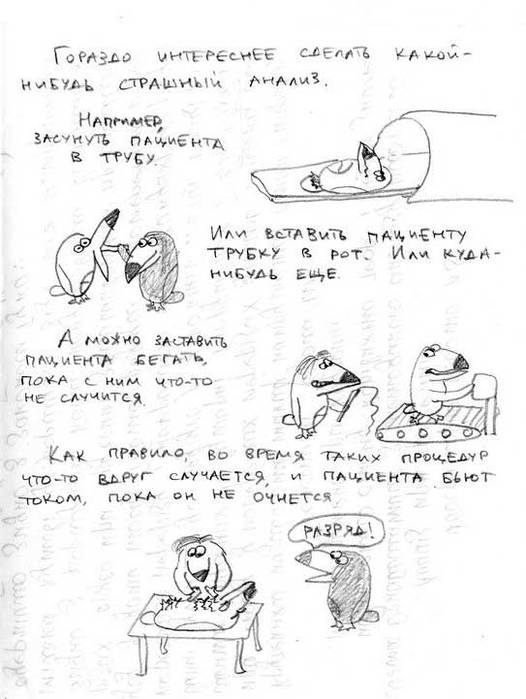 Гораздо интереснее сделать какой-
нибудь страшный анализ.
Например,
засунуть пациента
в трубу.
Или вставить пациенту
трубку в рот. Или куда-
нибудь еще.
А можно заставить
пациента бегать,
пока с ним что-то
не случится.
Как правило, во время таких процедур
что-то вдруг случается, и пациента бьют
током, пока он не очнется.
Разряд!